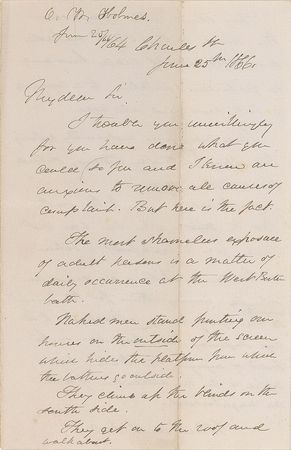 O. W. Holmes.
June 25/66
164 Charles St
June 25th 1866.
My dear Sir.
I trouble you unwillingly
for you have done what you
could, for you and I know are
anxious to remove all causes of
complaint. But here is the fact.
The most shameless exposure
of adult persons is a matter of
daily occurrence at the West Boston
bath.
Naked men stand fronting our
houses on the outside of the screen
which hides the platform from which
the bathers go outside.
They climb up the blinds on the
south side.
They get on to the roof and
walk about.